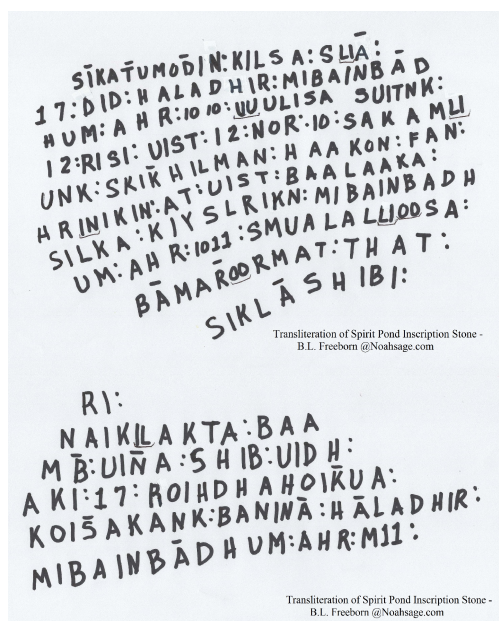 SĪKAT̄UMOD̄IN:KILSA:SLIĀ:
17:DID:HALADHIR:MIBAINBĀD
HUM:AHR:1010:UUULISA SUITNK:
12:RISI:UIST:12:NOR:10:SAKAMLI
UNK:SKIK̄HILMAN:HAAKON:FAN:
HRINIKIN:AT:UIST:BAALAAKA:
SILKA:KIYSLRIKN:MIBAINBADH
UM:AHR:1011:SMUALALLIOOSA:
BĀMAR̄OORMAT:THAT:
SIKLĀSHIBI:
Transliteration of Spirit Pond Inscription Stone -
B.L. Freeborn @Noahsage.com
RI:
NAIKILAKTA:BAA
MB̄:UIÑA:SHIB:UIDH:
AKI:17:ROIHDHAHOIK̄UA:
KOIS̄AKANK:BANINĀ:HĀLADHIR:
MIBAINBĀDHUM:AHR:M11:
Transliteration of Spirit Pond Inscription Stone -
B.L. Freeborn @Noahsage.com